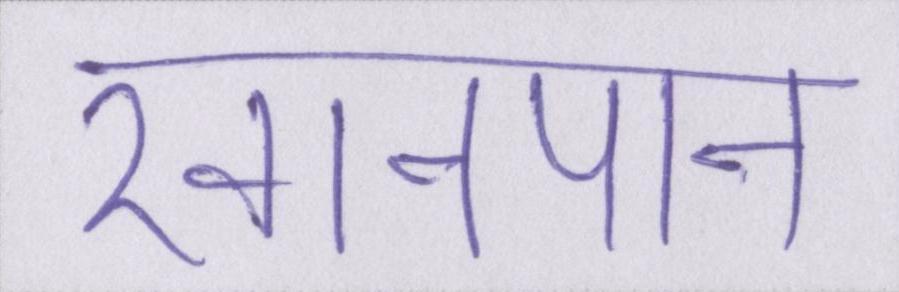 खानपान